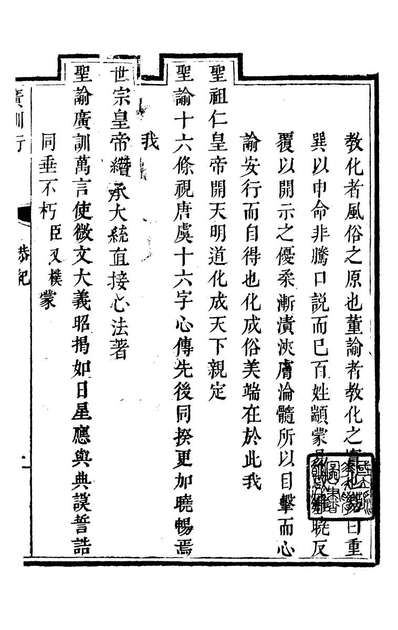 教化者風俗之原也董諭者教化之也易曰重
巽以申命非騰口説而已百姓顓蒙易曉反
覆以開示之優柔漸漬浹膚淪髓所以目擊而心
諭安行而自得也化成俗美端在於此我
聖祖仁皇帝開天明道化成天下親定
聖諭十六條視唐虞十六字心傳先後同揆更加曉暢焉
我
世宗皇帝纘承大統直接心法著
聖諭廣訓萬言使微文大義昭揭如日星應與典謨誓誥
同垂不朽臣又樸蒙
廣訓衍
恭紀